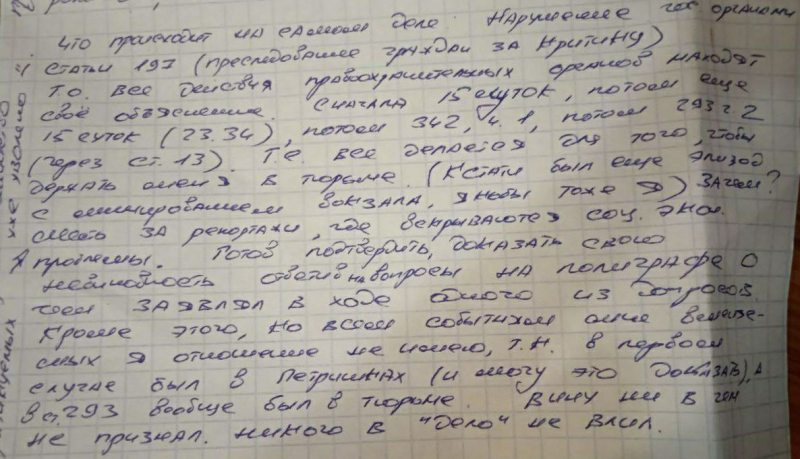 Что происходит на самом деле. Нарушение гос органами
статьи 197 (преследование граждан за критику)
Т.о. все действия правоохранительных органов находят
своё объяснение. Сначала 15 суток, потом еще
15 суток (23.34), потом 342, ч. 1, потом 293 ч 2
(через ст. 13). Т.е. все делается для того, чтобы
держать меня в тюрьме. (Кстати был еще эпизод
с минированием вокзала, якобы тоже я) Зачем?
месть за репортажи, где вскрываются соц. экон.
проблемы. Готов подтвердить, доказать свою
невиновность ответив на вопросы на полиграфе о
чем заявлял в ходе одного из допросов.
Кроме этого, ко всем событиям мне вменяе-
мых я отношение не имею, т.к. в первом
случае был в Петришках (и могу это доказать), а
в ст. 293 вообще был в тюрьме. Вину ни в чем
не признал. никого в "дело" не влил.
уже уволено